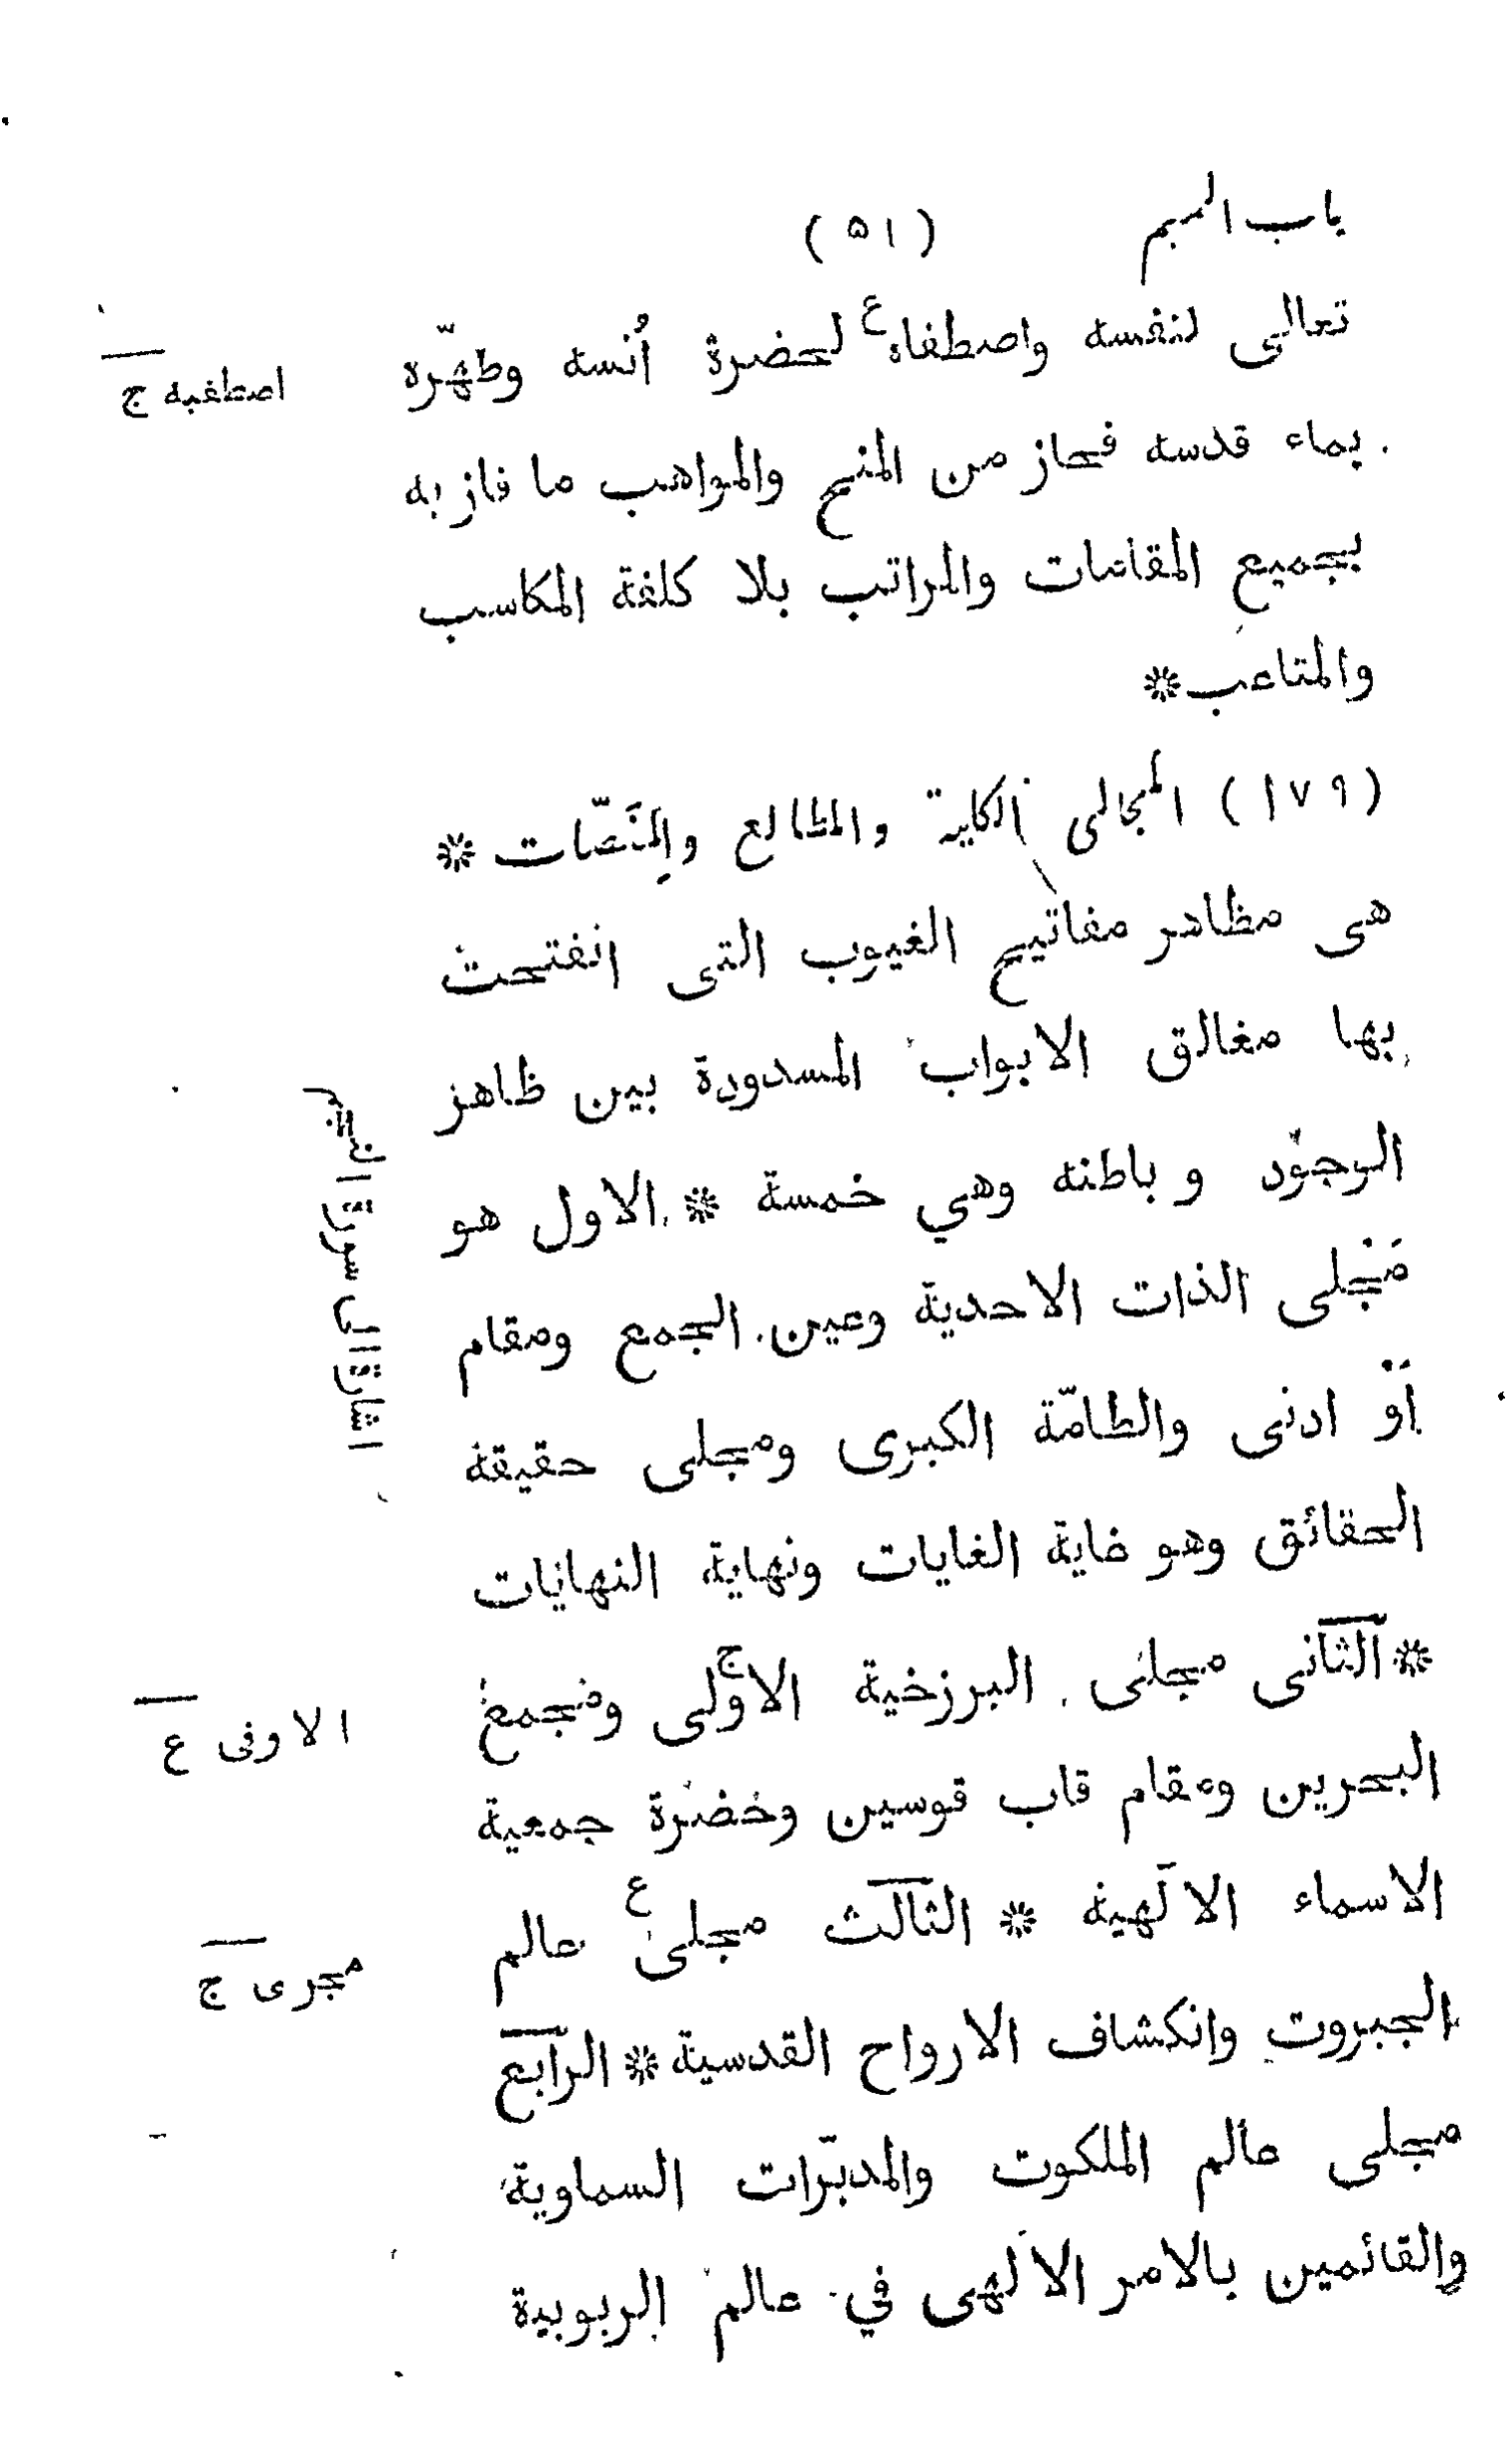 باب الميم (٥١)
تعالى لنفسه واصطفاه ع لحضرة أُنسه وطهّره
اصطفيه ج
بماء قدسه فحاز من المنح والمواهب ما فاز به
بجميع المقامات والمراتب بلا كلفة المكاسب
والمتاعب *
(١٧٩) المجالى الكلية والمطالع والمِنَصّات *
هى مظاهر مفاتيح الغيوب التى انفتحت
بها مغالق الابواب المسدودة بين ظاهر
الوجود وباطنه وهي خمسة * الاول هو
مَجلى الذات الاحدية وعين الجمع ومقام
اَوْ ادنى والطامّة الكبرى ومجلى حقيقة
اشارة الى سورة النجم
الحقائق وهو غاية الغايات ونهاية النهايات
* الثانى مجلى البرزخية الاولى ج ومجمع
الاوفى ع
البحرين ومقام قاب قوسين وحضرة جمعية
الاسماء الالٓهية * الثالث مجلى ع عالم
مجرى ج
الجبروت وانكشاف الارواح القدسية * الرابع
مجلى عالم الملكوت والمدبّرات السماوية
والقائمين بالامر الالٓهى في عالم الربوبية